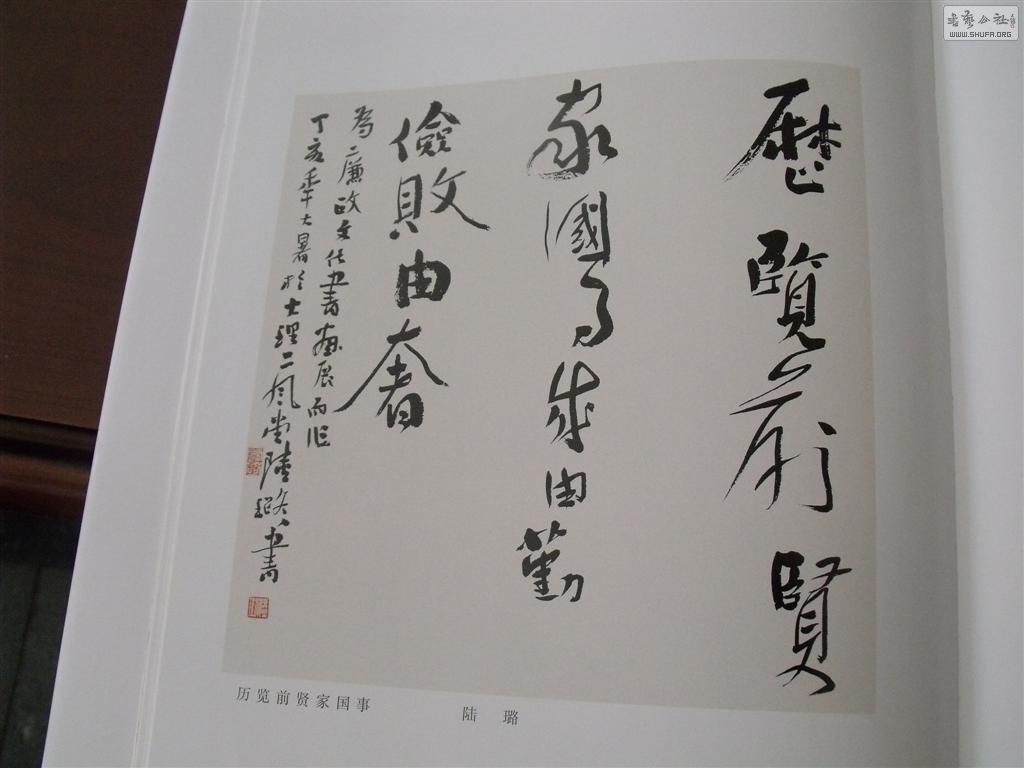 歷覽前賢
家國事成由勤
儉敗由奢
為廉政文化書畫展而作
丁亥年大暑於大理二風堂陸璐書
历览前贤家国事
陆 璐
書藝公社
WWW.SHUFA.ORG